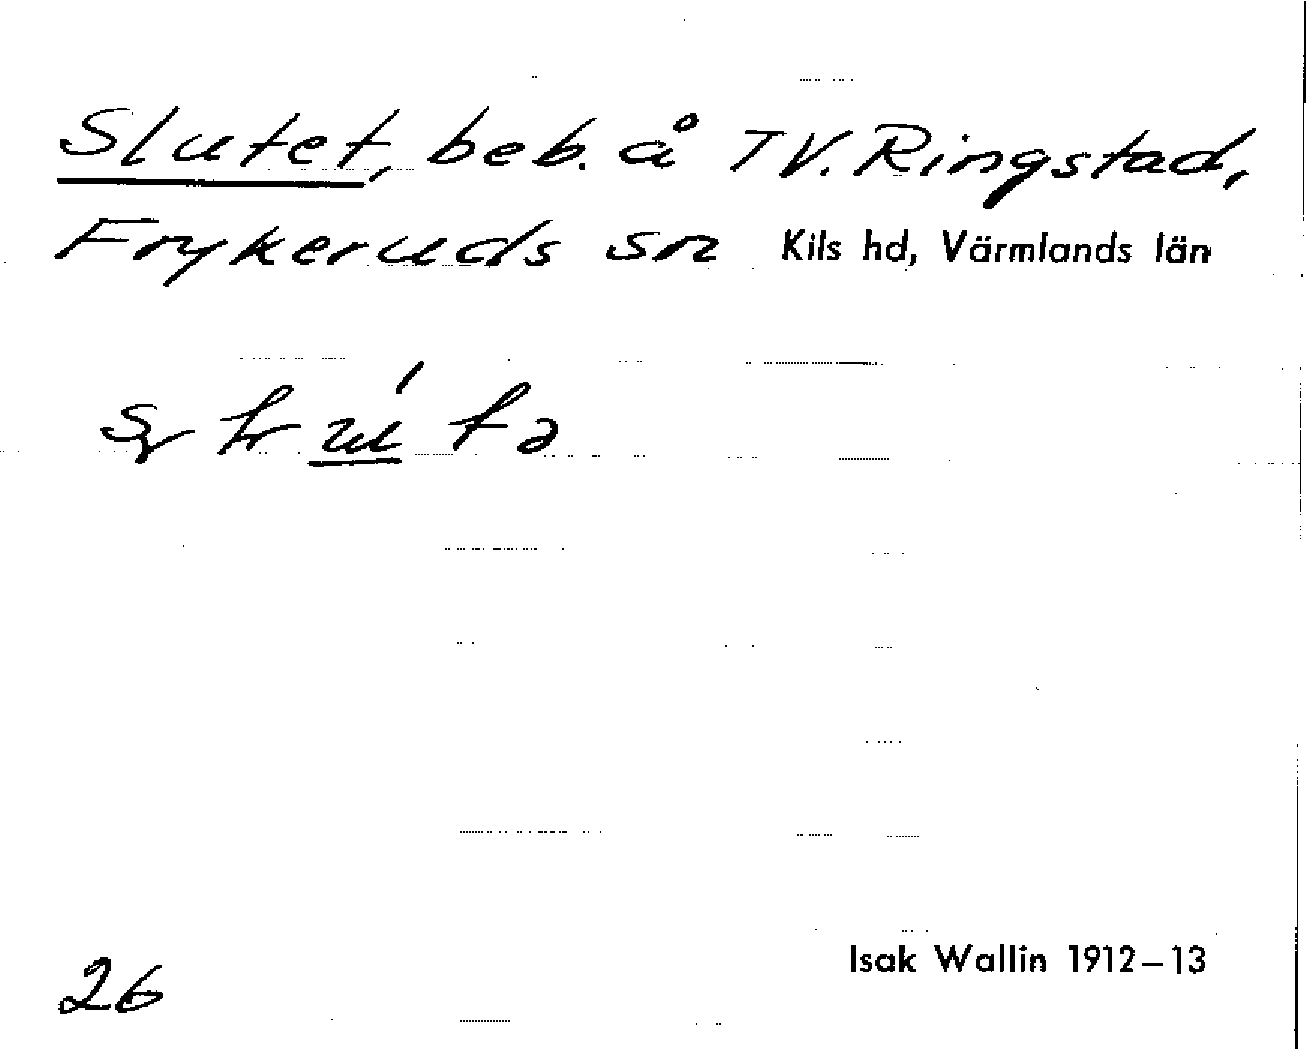 Slutet, beb. å TV. Ringstad,
Frykeruds sn Kils hd, Värmlands län
Isak Wallin 1912–13
26